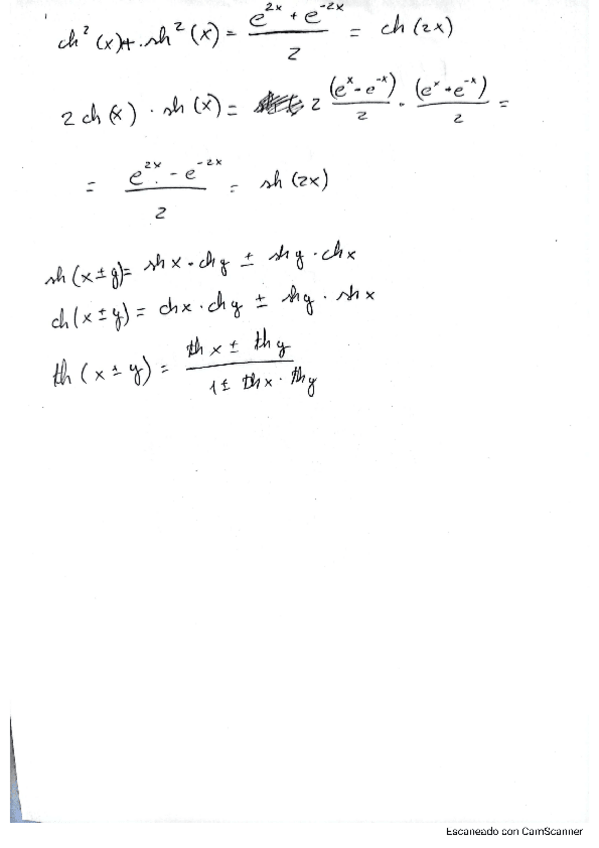 ch²(x)+sh²(x) = (e^{2x} + e^{-2x})/2 = ch(2x)
2ch(x)·sh(x) = 2 (e^x - e^{-x})/2 · (e^x + e^{-x})/2 =
= (e^{2x} - e^{-2x})/2 = sh(2x)
sh(x±y)= shx·chy ± shy·chx
ch(x±y) = chx·chy ± shy·shx
th(x±y) = (thx ± thy)/(1± thx·thy)
Escaneado con CamScanner